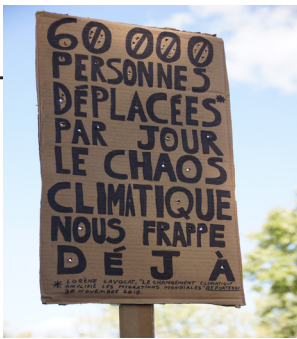 60 000
PERSONNES
DÉPLACÉES*
PAR JOUR
LE CHAOS
CLIMATIQUE
NOUS FRAPPE
DÉJÀ
* LORÈNE LAVOCAT, "LE CHANGEMENT CLIMATIQUE
AMPLIFIE LES MIGRATIONS MONDIALES" REPORTERRE
30 NOVEMBRE 2018